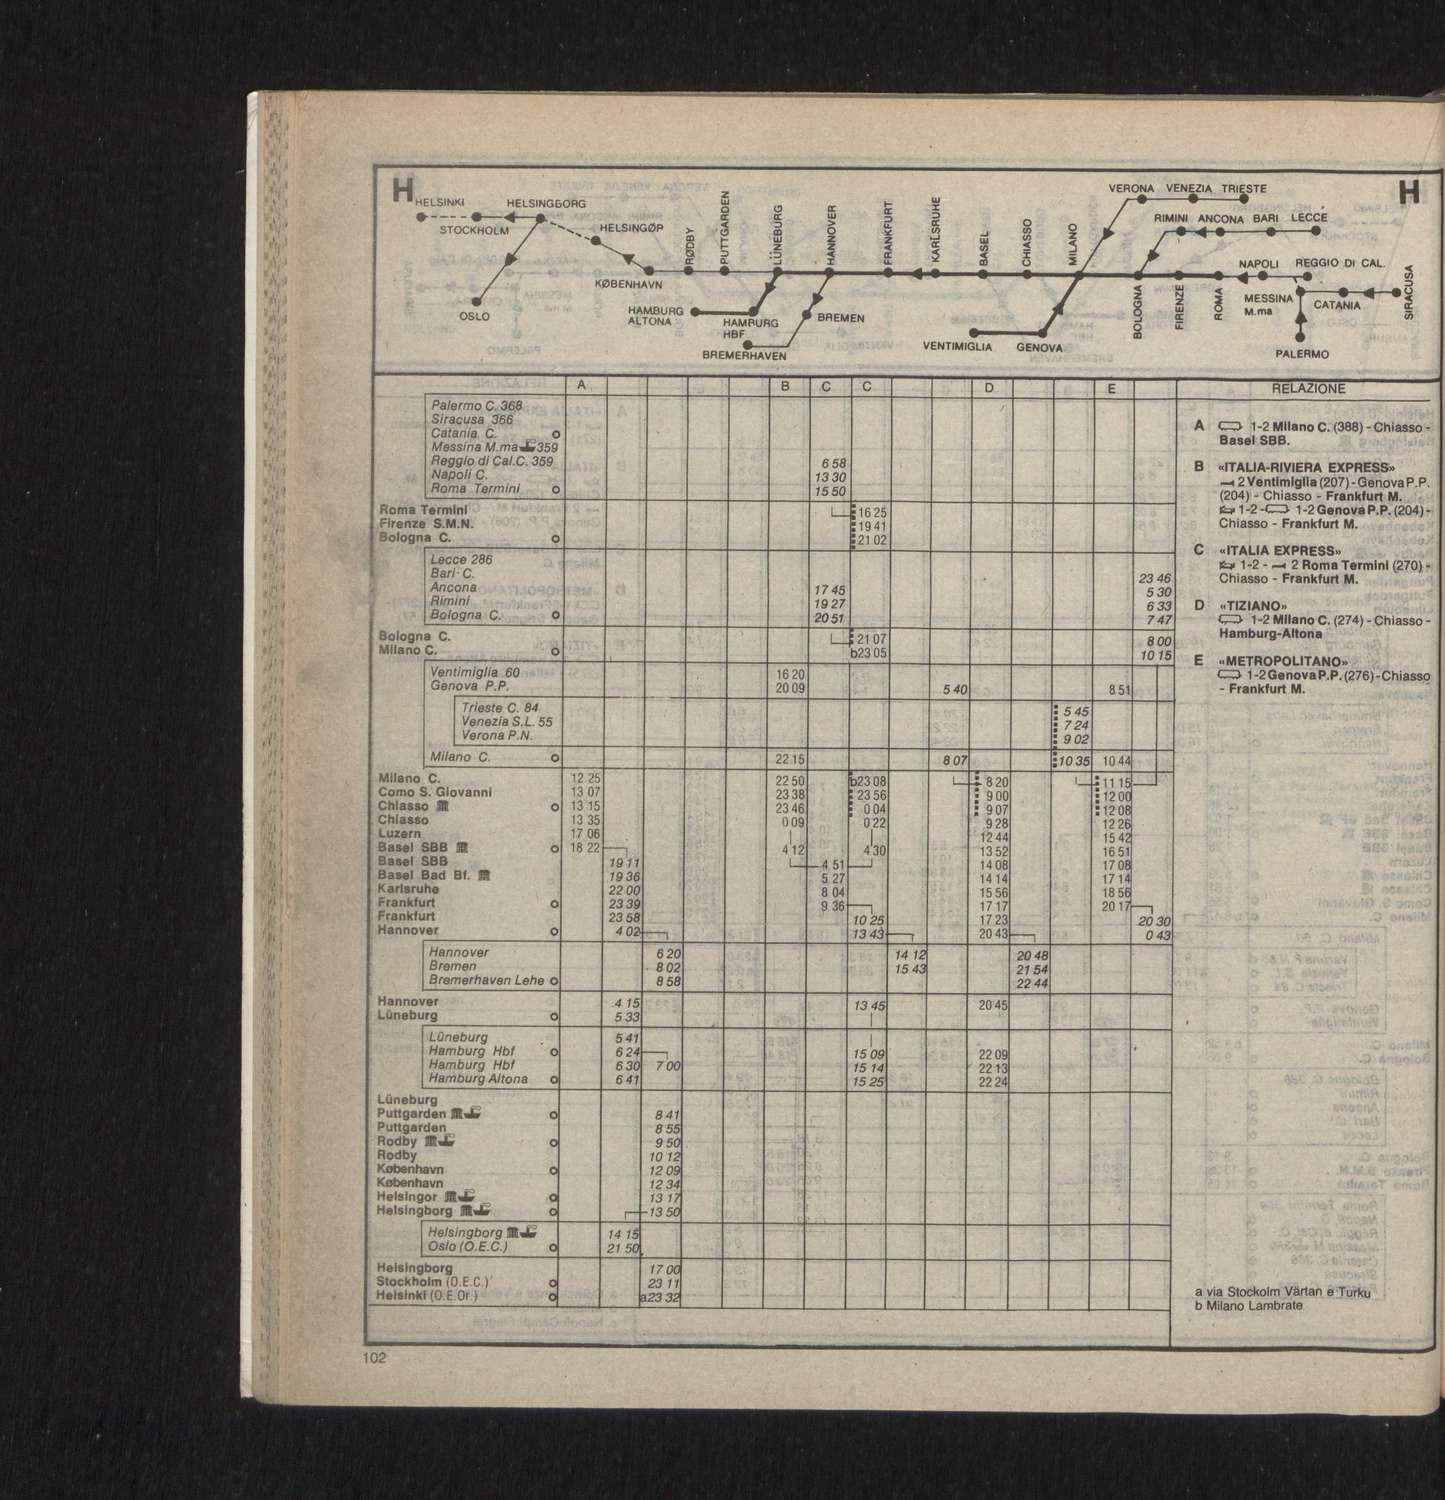 H H
HELSINKI HELSINGBORG
STOCKHOLM
HELSINGØP
RØDBY
PUTTGARDEN
LÜNEBURG
HANNOVER
FRANKFURT
KARLSRUHE
BASEL
CHIASSO
MILANO
VERONA VENEZIA TRIESTE
RIMINI ANCONA BARI LECCE
NAPOLI REGGIO DI CAL.
KØBENHAVN
OSLO
HAMBURG
ALTONA
HAMBURG
HBF
BREMEN
BREMERHAVEN
VENTIMIGLIA GENOVA
BOLOGNA
FIRENZE
ROMA
MESSINA
M.ma
CATANIA
SIRACUSA
PALERMO
A B C C D E RELAZIONE
Palermo C. 368
Siracusa 366
Catania C.
Messina M.ma 359
Reggio di Cal.C. 359 6 58
Napoli C. 13 30
Roma Termini 15 50
Roma Termini 16 25
Firenze S.M.N. 19 41
Bologna C. 21 02
Lecce 286
Bari C. 23 46
Ancona 17 45 5 30
Rimini 19 27 6 33
Bologna C. 20 51 7 47
Bologna C. 21 07 8 00
Milano C. b23 05 10 15
Ventimiglia 60 16 20
Genova P.P. 20 09 5 40 8 51
Trieste C. 84 5 45
Venezia S.L. 55 7 24
Verona P.N. 9 02
Milano C. 22 15 8 07 10 35 10 44
Milano C. 12 25 22 50 b23 08 8 20 11 15
Como S. Giovanni 13 07 23 38 23 56 9 00 12 00
Chiasso 13 15 23 46 0 04 9 07 12 08
Chiasso 13 35 0 09 0 22 9 28 12 26
Luzern 17 06 12 44 15 42
Basel SBB 18 22 4 12 4 30 13 52 16 51
Basel SBB 19 11 4 51 14 08 17 08
Basel Bad Bf. 19 36 5 27 14 14 17 14
Karlsruhe 22 00 8 04 15 56 18 56
Frankfurt 23 39 9 36 17 17 20 17
Frankfurt 23 58 10 25 17 23 20 30
Hannover 4 02 13 43 20 43 0 43
Hannover 6 20 14 12 20 48
Bremen 8 02 15 43 21 54
Bremerhaven Lehe 8 58 22 44
Hannover 4 15 13 45 20 45
Lüneburg 5 33
Lüneburg 5 41
Hamburg Hbf 6 24 15 09 22 09
Hamburg Hbf 6 30 7 00 15 14 22 13
Hamburg Altona 6 41 15 25 22 24
Lüneburg
Puttgarden 8 41
Puttgarden 8 55
Rodby 9 50
Rodby 10 12
København 12 09
København 12 34
Helsingor 13 17
Helsingborg 13 50
Helsingborg 14 15
Oslo (O.E.C.) 21 50
Helsingborg 17 00
Stockholm (O.E.C.) 23 11
Helsinki (O.E.Or.) a23 32
A 1-2 Milano C. (388) - Chiasso -
Basel SBB.
B «ITALIA-RIVIERA EXPRESS»
2 Ventimiglia (207) - Genova P.P.
(204) - Chiasso - Frankfurt M.
1-2 - 1-2 Genova P.P. (204) -
Chiasso - Frankfurt M.
C «ITALIA EXPRESS»
1-2 - 2 Roma Termini (270) -
Chiasso - Frankfurt M.
D «TIZIANO»
1-2 Milano C. (274) - Chiasso -
Hamburg-Altona
E «METROPOLITANO»
1-2 Genova P.P. (276) - Chiasso
- Frankfurt M.
a via Stockolm Värtan e Turku
b Milano Lambrate
102